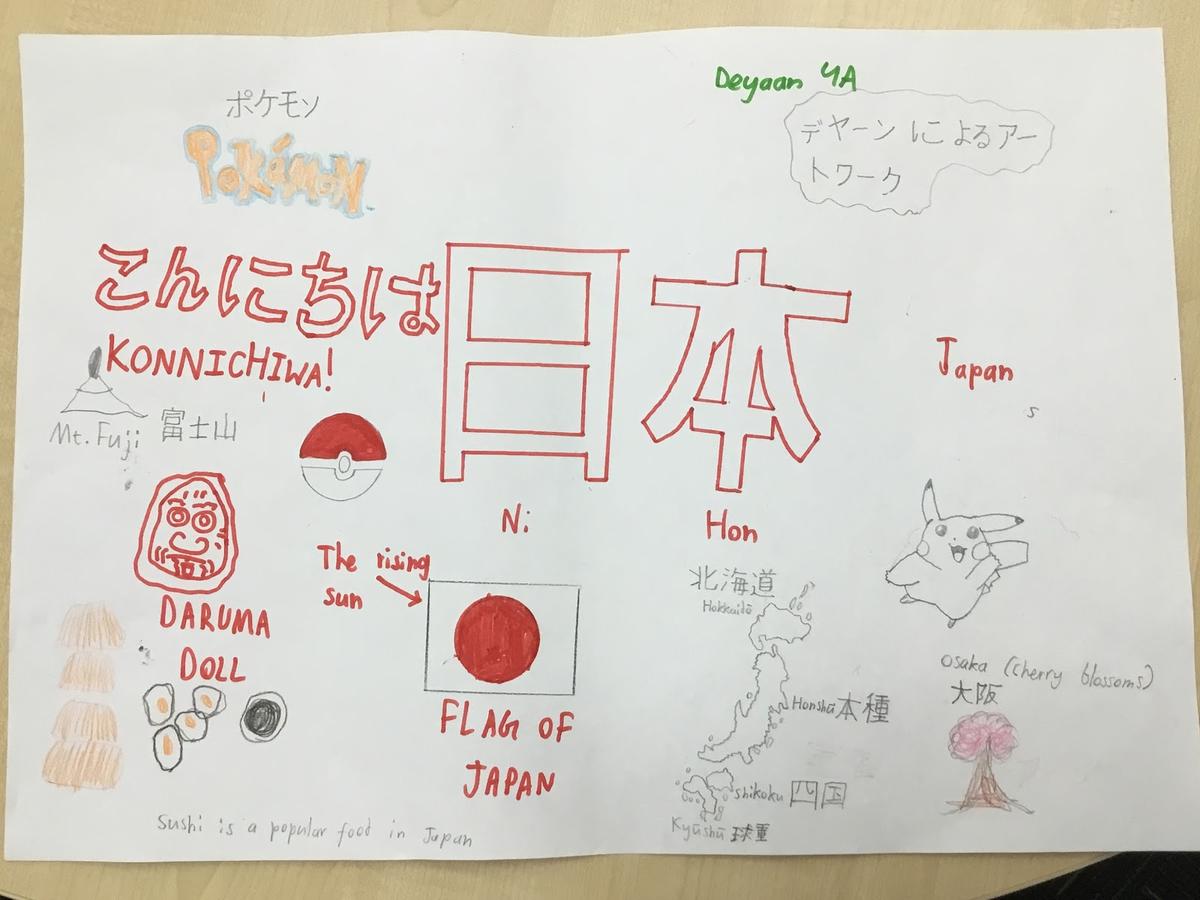 Deyaan 4A
ポケモン
PokáMoN
デヤーンによるアー
トワーク
こんにちは
KONNICHIWA!
日本
Japan
s
Mt. Fuji 富士山
Ni
Hon
The rising
sun
DARUMA
DOLL
FLAG OF
JAPAN
北海道
Hokkaidō
Honshū本種
Shikoku 四国
Kyūshū 球重
Osaka (cherry blossoms)
大阪
Sushi is a popular food in Japan